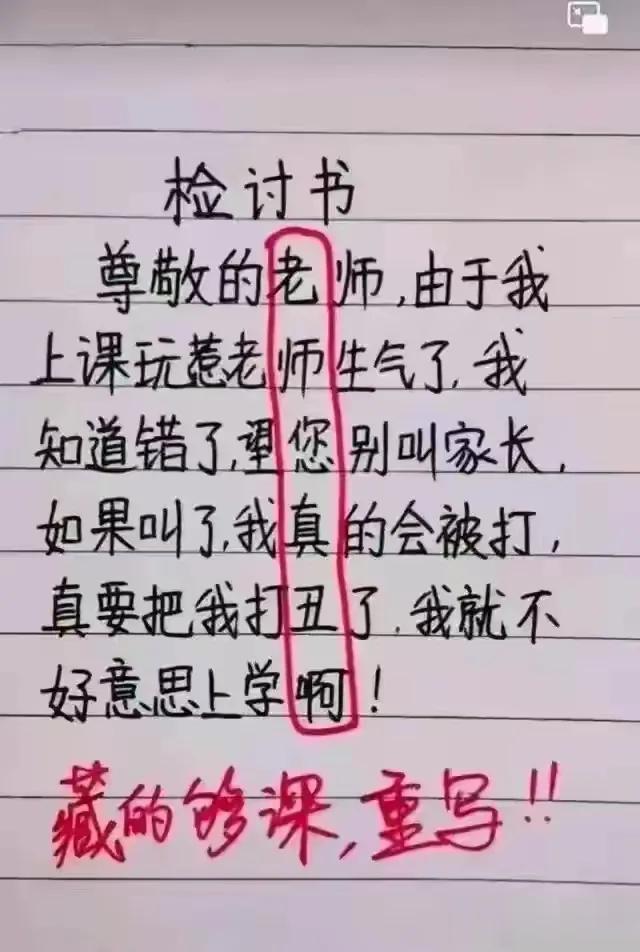 检讨书
尊敬的老师,由于我
上课玩惹老师生气了,我
知道错了,望您别叫家长,
如果叫了,我真的会被打,
真要把我打丑了,我就不
好意思上学啊!
藏的够深,重写!!